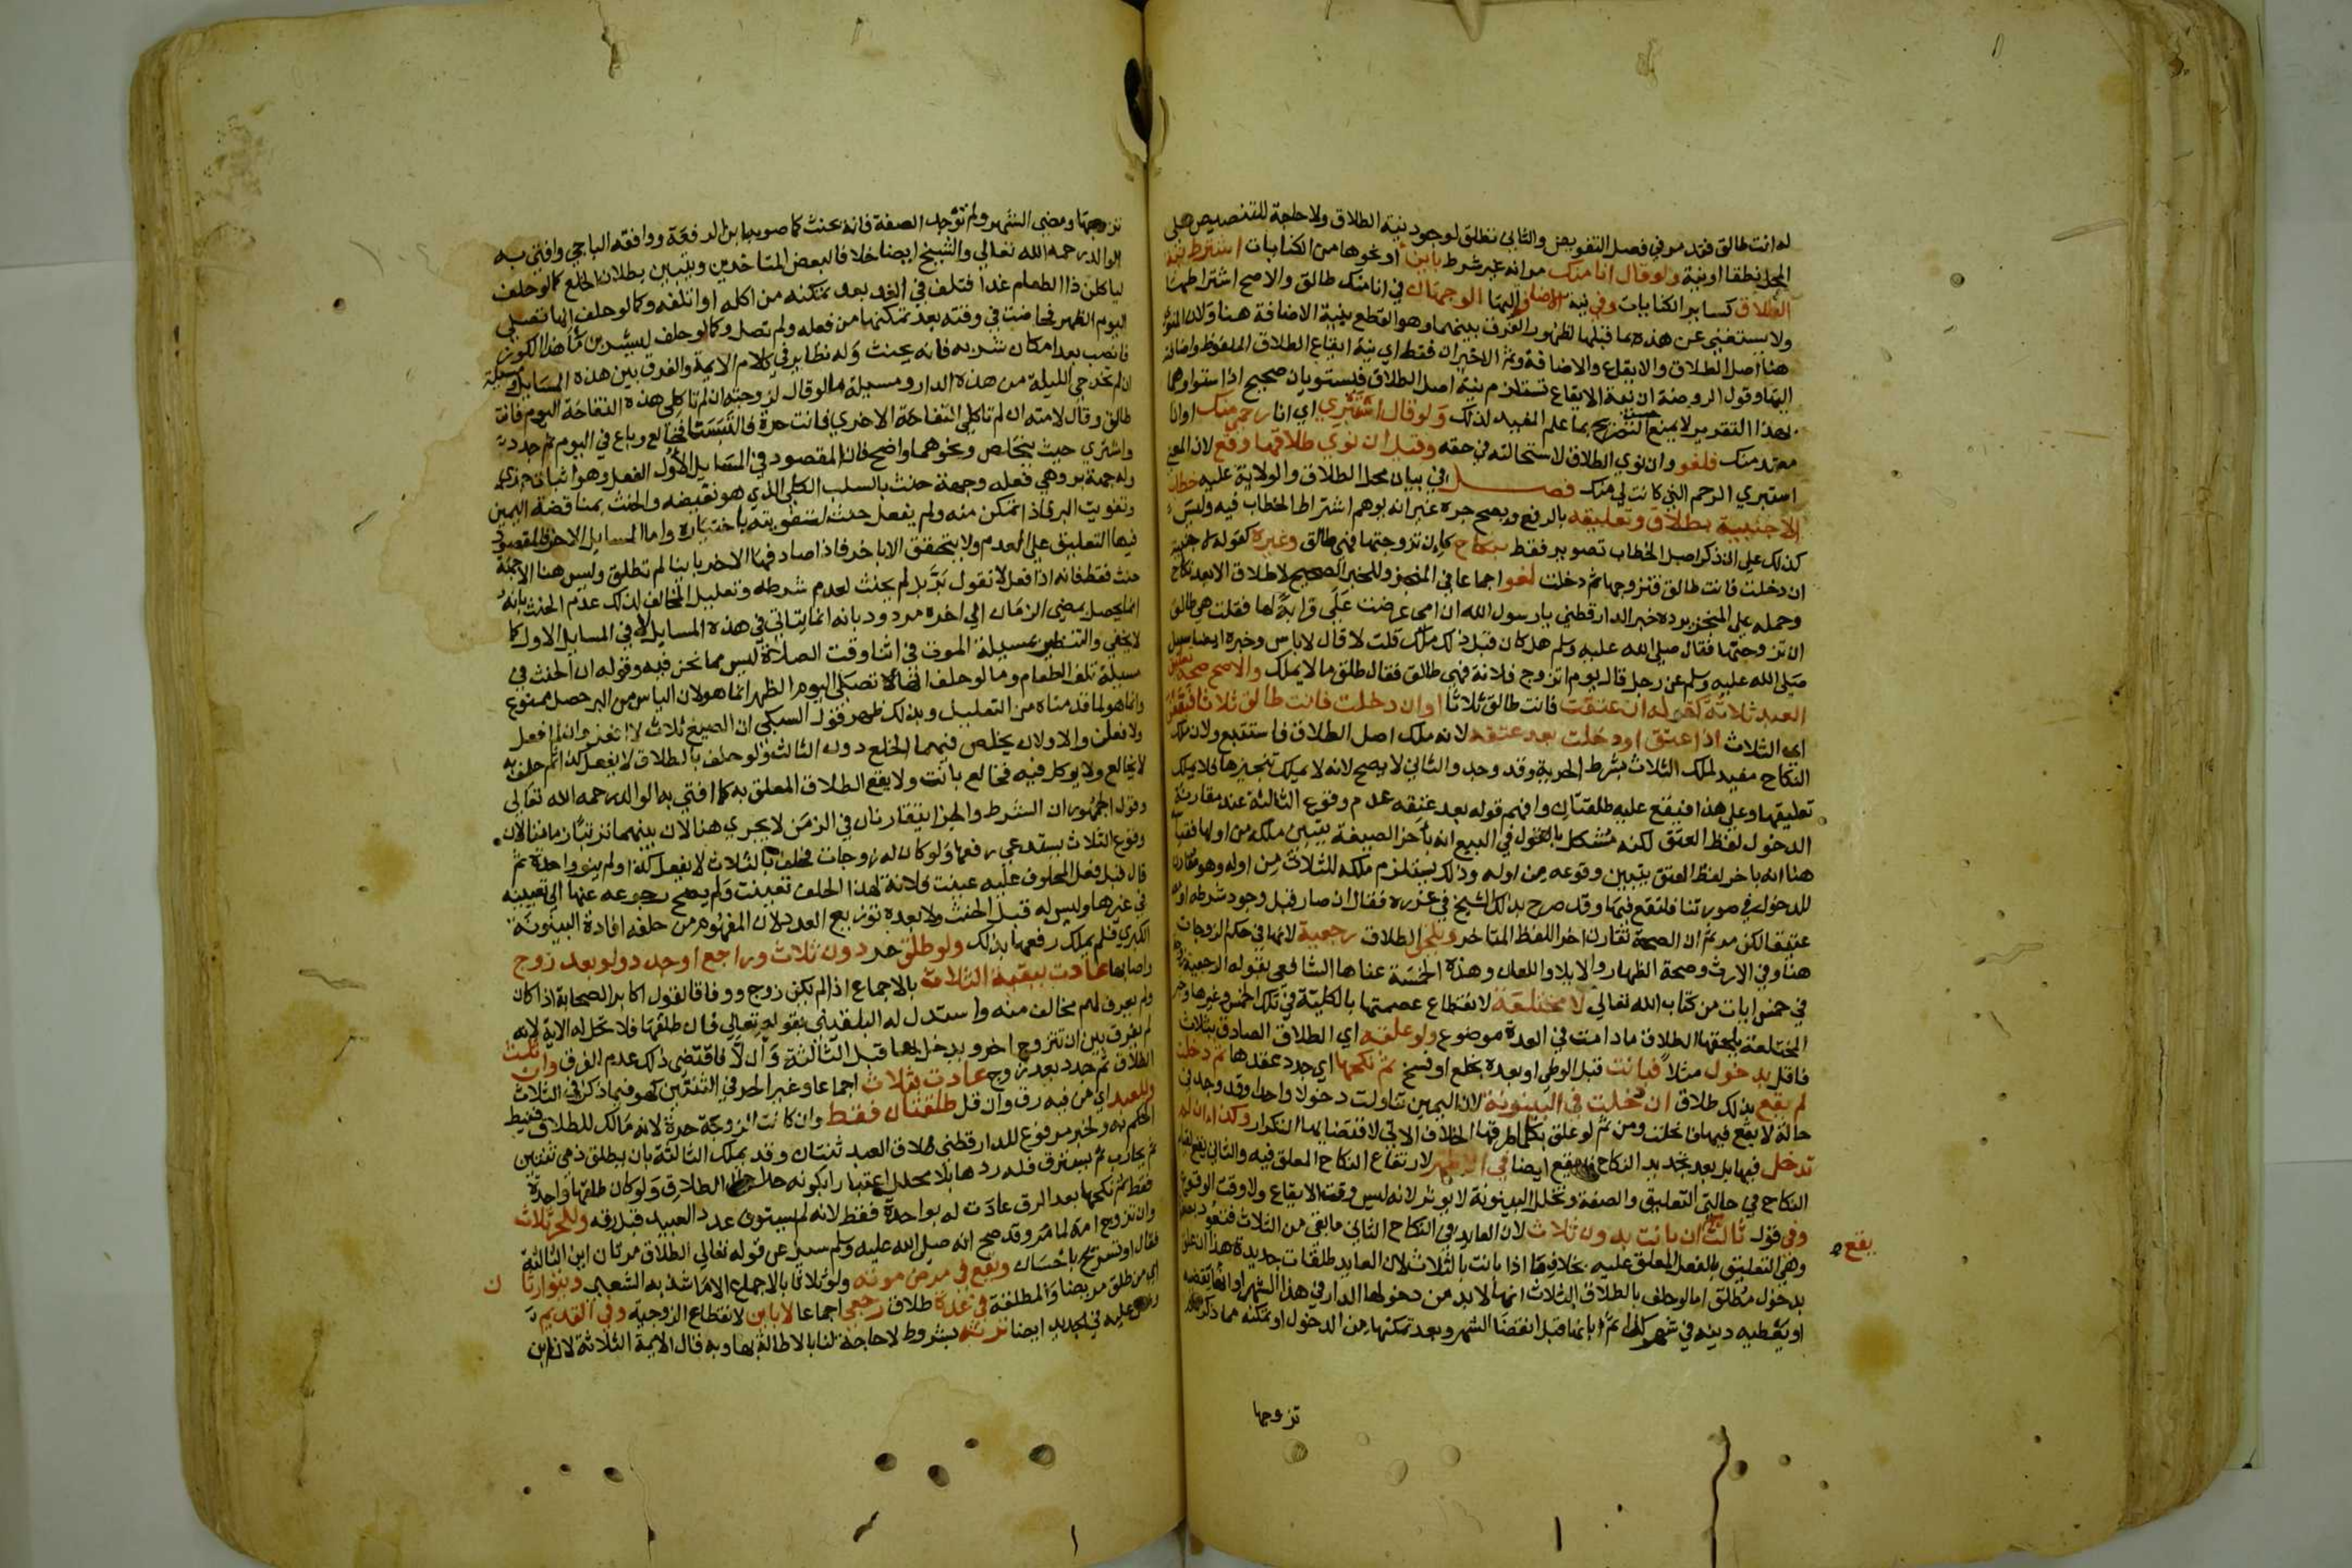 له انت طالق فقد مر في فصل التفويض والثاني تطلق لوجود نية الطلاق ولا حاجة للتنصيص على
المحل نطقا او نية ولو قال انا منك بائن او نحوها من الكنايات اشترط نية
الطلاق كساير الكنايات وفي نية الاضافة اليها الوجهان في انا منك طالق والاصح اشتراطها
ولا يستغنى عن هذه بما قبلها لظهور الفرق بينهما وهو القطع بنية الاضافة هنا ولان المنوي
هنا اصل الطلاق والايقاع والاضافة وثم الاخيران فقط اي نية ايقاع الطلاق الملفوظ واضافته
اليها وقول الروضة ان نية الايقاع تستلزم نية اصل الطلاق فيستويان صحيح اذا استواوهما
بهذا التقرير لا يمنع حسن التصريح بما علم المفيد لذلك ولو قال استبري اي انا رحمي منك او انا
معتد منك فلغو وان نوى الطلاق لاستحالته في حقه وقيل ان نوى طلاقها وقع لان المعنى
استبري الرحم التي كانت لي منك فصل في بيان محل الطلاق والولاية عليه خطاب
الاجنبية بطلاق وتعليقه بالرفع ويصح جره غير انه يوهم اشتراط الخطاب فيه وليس
كذلك على ان ذكر اصل الخطاب تصوير فقط بنكاح كان تزوجتها فهي طالق وغيره كقوله لاجنبية
ان دخلت فانت طالق فتزوجها ثم دخلت لغو اجماعا في المنجز وللخبر الصحيح لا طلاق الا بعد نكاح
وحمله على المنجز يرده خبر الدارقطني يا رسول الله ان امي عرضت علي قرابة لها فقلت هي طالق
ان تزوجتها فقال صلى الله عليه وسلم هل كان قبل ذلك ملك قلت لا قال لا باس وخبره ايضا سيل
صلى الله عليه وسلم عن رجل قال يوم اتزوج فلانة فهي طالق فقال طلق ما لا يملك والاصح صحة تعليق
العبد ثلاثة كقوله ان عتقت فانت طالق ثلاثا او ان دخلت فانت طالق ثلاثا فيقعن
اي الثلاث اذا عتق او دخلت بعد عتقه لانه ملك اصل الطلاق فاستتبع ولان ملك
النكاح مفيد لملك الثلاث بشرط الحرية وقد وجد والثاني لا يصح لانه لا يملك تنجيزها فلا يملك
تعليقها وعلى هذا فيقع عليه طلقتان وافهم قوله بعد عتقه عدم وقوع الثالثة عند مقارنة
الدخول لفظ العتق لكنه مشكل بالقول في البيع انه باخر الصيغة يتبين ملكه من اولها فقياسه
هنا انه باخر لفظ العتق يتبين وقوعه من اوله وذلك يستلزم ملكه للثلاث من اوله وهو مقارن
للدخول في صورتنا فلتقع فيها وقد صرح بذلك الشيخ في غرره فقال ان صار قبل وجود شرطه او معه
عتيقا لكن مر ثم ان الصحة تقارن اخر اللفظ المتاخر ويلحق الطلاق رجعية لانها في حكم الزوجات
هنا وفي الارث وصحة الظهار والايلا واللعان وهذه الخمسة عناها الشافعي بقوله الرجعية زوجة
في خمس ايات من كتاب الله تعالى لا مختلعة لانقطاع عصمتها بالكلية في تلك الخمس وغيرها وخبر
المختلعة يلحقها الطلاق ما دامت في العدة موضوع ولو علقه اي الطلاق الصادق بثلاث
فاقل بدخول مثلا فبانت قبل الوطي او بعده بخلع او فسخ ثم نكحها اي جدد عقدها ثم دخلت
لم يقع بذلك طلاق ان دخلت في البينونة لان اليمين تناولت دخولا واحدا وقد وجد في
حالة لا يقع فيها فانحلت ومن ثم لو علق بكلما طرقها الخلاف الاتي لاقتضايها التكرار وكذا ان لم
تدخل فيها بل بعد تجديد النكاح فلا يقع ايضا في الاظهر لارتفاع النكاح المعلق فيه والثاني يقع لقيام
النكاح في حالتي التعليق والصفة وتخلل البينونة لا يوثر لانه ليس وقت الايقاع ولا وقت الوقوع
وفي قول ثالث يقع ان بانت بدون ثلاث لان العايد في النكاح الثاني ما بقي من الثلاث فتعود بصفتها
وهي التعليق بالفعل المعلق عليه بخلاف ما اذا بانت بالثلاث لان العايد طلقات جديدة هذا ان علق
بدخول مطلق اما لو حلف بالطلاق الثلاث انها لا بد من دخولها الدار في هذا الشهر او انه يقضيه
او يعطيه دينه في شهر كذا ثم ابانها قبل انقضا الشهر وبعد تمكنها من الدخول او تمكنه مما ذكر ثم
يقع
تزوجها
تزوجها ومضى الشهر ولم توجد الصفة فانه يحنث كما صوبه ابن الرفعة ووافقه الباجي وافتى به
الوالد رحمه الله تعالى والشيخ ايضا خلافا لبعض المتاخرين ويتبين بطلان الخلع كما لو حلف
لياكلن ذا الطعام غدا فتلف في الغد بعد تمكنه من اكله او اتلفه وكما لو حلف انها تصلي
اليوم الظهر فحاضت في وقته بعد تمكنها من فعله ولم تصل وكما لو حلف ليشربن ما هذا الكوز
فانصب بعد امكان شربه فانه يحنث وله نظاير في كلام الايمة والفرق بين هذه المسايل ومسيلة
ان لم تخرجي الليلة من هذه الدار ومسيلة ما لو قال لزوجته ان لم تاكلي هذه التفاحة اليوم فانت
طالق وقال لامته ان لم تاكلي التفاحة الاخرى فانت حرة فالتبستا فخالع وباع في اليوم ثم جدد
واشترى حيث يتخلص ونحوهما واضح فان المقصود في المسايل الاول الفعل وهو اثبات جزي
وله جهة بر وهي فعله وجهة حنث بالسلب الكلي الذي هو نقيضه والحنث بمناقضة اليمين
وتفويت البر فاذا تمكن منه ولم يفعل حنث لتفويته باختياره واما المسايل الاخر فالمقصود
فيها التعليق على العدم ولا يتحقق الا بالاخر فاذا صادفها الاخر باينا لم تطلق وليس هنا الا جهة
حنث فقط فانه اذا فعل لا نقول بر بل لم يحنث لعدم شرطه وتعليل المخالف لذلك عدم الحنث بانه
انما يحصل بمضي الزمان الى اخره مردود بانه انما ياتي في هذه المسايل لا في المسايل الاول كما
لا يخفى والتنظير بمسيلة الموت في اثنا وقت الصلاة ليس مما نحن فيه وقوله ان الحنث في
مسيلة تلف الطعام وما لو حلف انها لا تصلي اليوم الظهر انما هو لان الياس من البر حصل ممنوع
وانما هو لما قدمناه من التعليل وبذلك ظهر قول السبكي ان الصيغ ثلاث لا افعل وان لم افعل
ولافعلن والاولان يخلص فيهما الخلع دون الثالث ولو حلف بالطلاق لا يفعل كذا ثم حلف به
لا يخالع ولا يوكل فيه فخالع بانت ولا يقع الطلاق المعلق به كما افتى به الوالد رحمه الله تعالى
وقول الجمهور ان الشرط والجزا يتقارنان في الزمن لا يجري هنا لان بينهما ترتبا زمانيا لان
وقوع الثلاث يستدعي رفعها ولو كان له زوجات فحلف بالثلاث لا يفعل كذا ولم ينو واحدة ثم
قال قبل فعل المحلوف عليه عينت فلانة لهذا الحلف تعينت ولم يصح رجوعه عنها الى تعيينه
في غيرها وليس له قبل الحنث ولا بعده توزيع العدد لان المفهوم من حلفه افادة البينونة
الكبرى فلم يملك رفعها بذلك ولو طلق حر دون ثلاث وراجع او جدد ولو بعد زوج
واصابها عادت ببقية الثلاث بالاجماع اذا لم يكن زوج ووفاقا لقول اكابر الصحابة اذا كان
ولم يعرف لهم مخالف منه واستدل له البلقيني بقوله تعالى فان طلقها فلا تحل له الاية لانه
لم يفرق بين ان تتزوج اخر ويدخل بها قبل الثالثة وان لا فاقتضى ذلك عدم الفرق وان ثلث
الطلاق ثم جدد بعد زوج عادت بثلاث اجماعا وغير الحر في الثنتين كهو فيما ذكر في الثلاث
وللعبد اي من فيه رق وان قل طلقتان فقط وان كانت الزوجة حرة لانه مالك للطلاق فنيط
الحكم به ولخبر مرفوع للدارقطني طلاق العبد ثنتان وقد يملك الثالثة بان يطلق ذمي ثنتين
ثم يحارب ثم يسترق فله ردها بلا محلل اعتبارا بكونه حرا حال الطلاق ولو كان طلقها واحدة
فقط ثم نكحها بعد الرق عادت له بواحدة فقط لانه لم يستوف عدد العبيد قبل رقه وللحر ثلاث
وان تزوج امة لما مر وقد صح انه صلى الله عليه وسلم سيل عن قوله تعالى الطلاق مرتان اين الثالثة
فقال او تسريح باحسان ويقع في مرض موته ولو ثلاثا بالاجماع الا ما شذ به الشعبي ويتوارثان
اي من طلق مريضا والمطلقة في عدة طلاق رجعي اجماعا لا باين لانقطاع الزوجية وفي القديم
ونص عليه في الجديد ايضا ترثه بشروط لا حاجة لنا بالاطالة بها وبه قال الايمة الثلاثة لان ابن